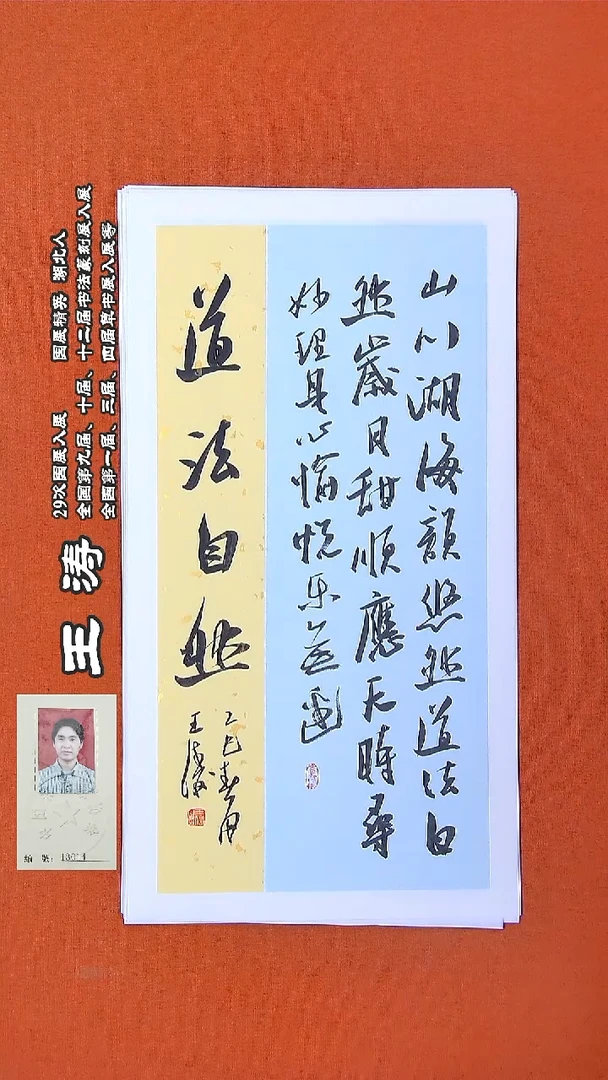 山川湖海韻悠然道法自
然歲月甜順應天時尋
妙理身心愉悦乐無邊
道法自然
乙巳春月
王涛
王涛
29次国展入展 国展精英 湖北人
全国第九届、十届、十二届书法篆刻展入展
全国第一届、三届、四届草书展入展等